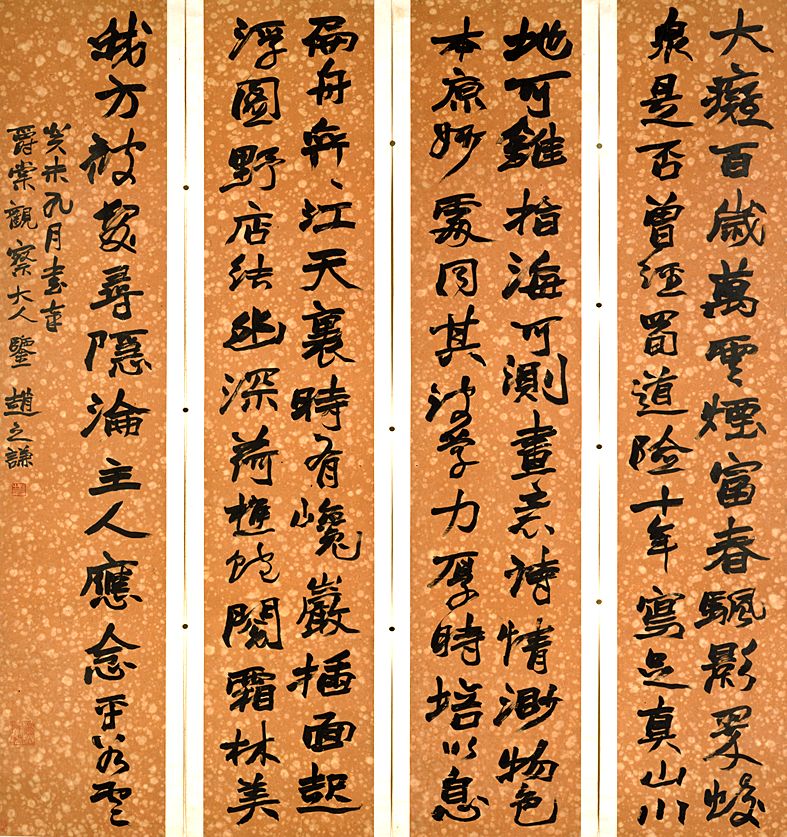 大癡百歲萬雲煙富春飄影
泉是否曾經蜀道險十年寫足真山川
地可錐指海可測畫意詩情渺物色
本原妙處同其波學力厚時培以息
扁舟奔、江天裏時有巉巖插面起
浮圖野店結幽深荷樵蛇閣霜林美
我方被髮尋隱淪主人應念平雲
癸未九月書奉
爵棠觀察大人鑒 趙之謙